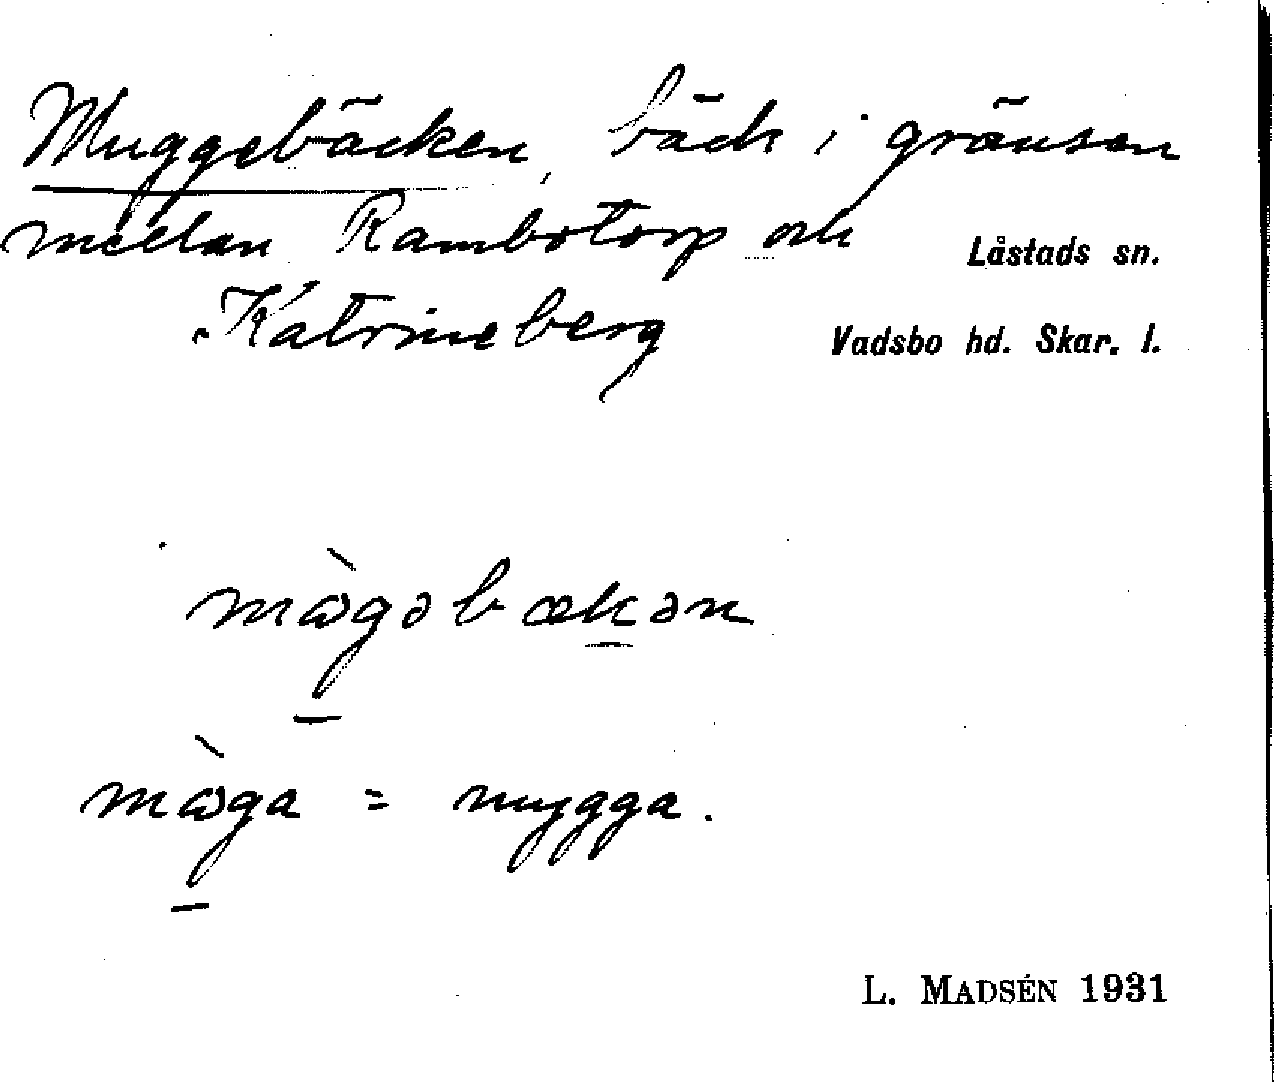 Muggebäcken, bäck i gränsen
mellan Rambotorp och
Katrineberg
Låstads sn.
Vadsbo hd. Skar. l.
mɷ̀gəbækən
mɷ̀ga = mygga.
L. MADSÉN 1931